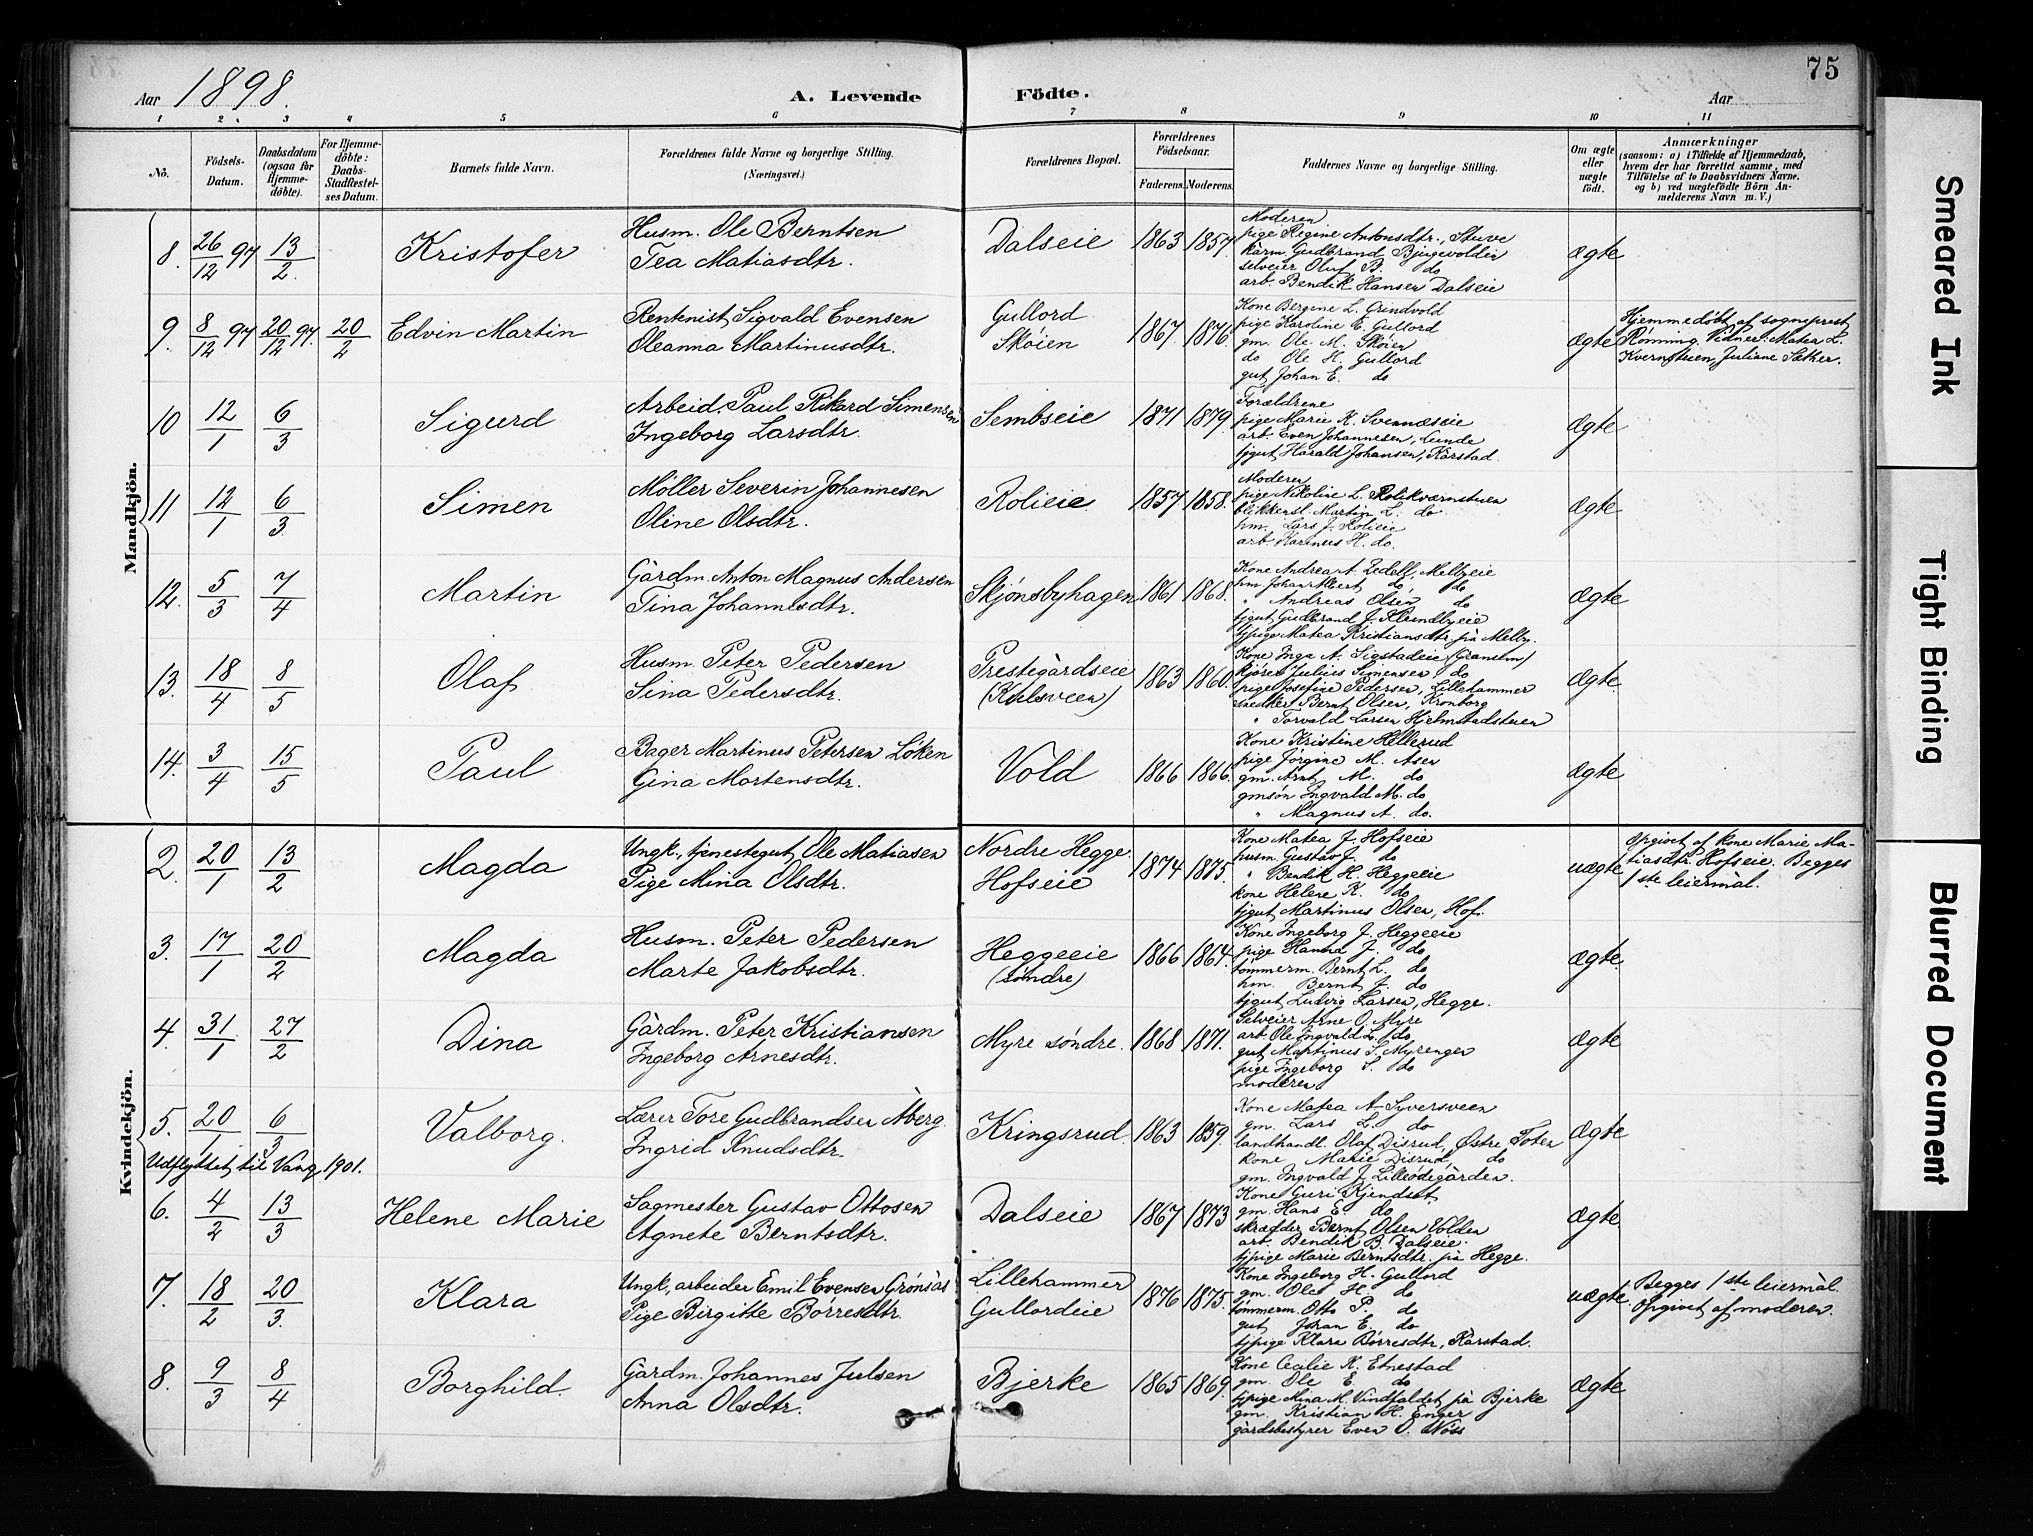 75
Aar 1898.
A. Levende Födte.
Aar
1 2 3 4 5 6 7 8 9 10 11
No.
Födsels-Datum.
Daabsdatum (ogsaa for Hjemme-döbte).
For Hjemme-döbte: Daabs-Stadfæstel-ses Datum.
Barnets fulde Navn.
Forældrenes fulde Navne og borgerlige Stilling.
(Næringsvei.)
Forældrenes Bopæl.
Forældrenes Födselsaar.
Faderens. Moderens.
Faddernes Navne og borgerlige Stilling.
Om ægte eller uægte födt.
Anmærkninger
(saasom: a) i Tilfælde af Hjemmedaab,
hvem der har forrettet samme, med
Tilföielse af to Daabsvidners Navne.
og b) ved uægtefödte Börn An-
melderens Navn m. V.)
Mandkjön.
8. 26/12 97 13/2. Kristofer
Husm. Ole Berntsen
Tea Matiasdtr.
Dalseie 1863 1857.
Moderen
pige Regine Antonsdtr., Stuve
kårm. Gudbrand Bjugevolden
selveier Oluf B. do
arb. Bendik Hansen Dalseie
ægte
9. 8/12 97 20/12 97. 20/2 Edvin Martin
Rentenist Sigvald Evensen
Oleanna Martinusdtr.
Gullord
Skøien
1867. 1876.
Kone Bergine L. Grindvold
pige Karoline E. Gullord
gm. Ole M. Skøien
do Ole H. Gullord
gut Johan E. do
ægte
Hjemmedøbt af sogneprest
Rømming. Vidner: Matea L.
Kvernstuen, Juliane Sæther.
10 12/1 6/3 Sigurd
Arbeid. Paul Rikard Simensen
Ingeborg Larsdtr.
Sembseie 1871 1879.
Forældrene
pige Marie K. Svennæseie
arb. Even Johannesen, Lunde
tjgut Harald Johansen, Kårstad.
ægte
11 12/1 6/3. Simen
Møller Severin Johannesen
Oline Olsdtr.
Rolieie 1857 1858.
Moderen
pige Nikoline L. Rolikværnstuen
blikkensl. Martin L. do
hm. Lars J. Rolieie
arb. Karinus H. do.
ægte
12. 5/3 7/4 Martin
Gårdm. Anton Magnus Andersen
Tina Johannesdtr.
Skjønsbyhagen 1861 1868.
Kone Andrea A. Zedell, Melbyeie
hm. Johan Albert do, do
" Andreas Olsen do
tjgut Gudbrand J. Klundbyeie
tjpige Matea Kristiansdtr på Melby.
ægte
13. 18/4 8/5 Olaf
Husm. Peter Pedersen
Sina Pedersdtr.
Prestegårdseie
1863 1860.
Kone Inga A. Sigstadeie (Gransum)
kjører Julius Simensen do
pige Josefine Pedersen, Lillehammer
snedker Bernt Olsen, Kronborg
" Torvald Larsen Hjelmstadstuen
ægte
14. 3/4 15/5 Paul
Bager Martinus Petersen Løken
Gina Mortensdtr.
Vold 1866 1866.
Kone Kristine Hellerud
pige Jørgine M. Asen
gm. Arnt M. do
gmsøn Ingvald M. do
" Magnus A. do.
ægte
Kvindekjön.
2. 20/1 13/2 Magda
Ungk., tjenestegut Ole Matiasen
Pige Mina Olsdtr.
Nordre Hegge.
Hofseie
1874 1875.
Kone Matea J. Hofseie
husm. Gustav J. do
" Bendik H. Heggeeie
kone Helene K. do
tjgut Martinus Olsen, Hof.
uægte
Opgivet af kone Marie Ma-
tiasdtr. Hofseie. Begges
1ste leiermål.
3. 17/1 20/2 Magda
Husm. Peter Pedersen
Marte Jakobsdtr.
Heggeeie
(søndre)
1866 1864.
Kone Ingeborg J. Heggeeie
pige Hanna J. do
tømmerm. Bernt L. do
hm. Bernt J. do
tjgut Ludvig Larsen, Hegge.
ægte.
4. 31/1 27/2 Dina
Gårdm. Peter Kristiansen
Ingeborg Arnesdtr.
Myre søndre. 1868 1871.
Selveier Arne O. Myre
arb. Ole Ingvald L. do
gut Martinus S. Myrenger
pige Ingeborg S. do
moderen
ægte
5. 20/1 6/3 Valborg.
Lærer Tore Gudbrandsen Åberg.
Ingrid Knudsdtr.
Kringsrud. 1863 1859.
Kone Matea A. Syversveen
gm. Lars L. do
landhandl. Olaf Disrud, Østre Toten
kone Marie Disrud, do
gm. Ingvald J. Lilleødegården.
ægte
Udflyttet til Vang 1901.
6. 4/2 13/3 Helene Marie
Sagmester Gustav Ottosen
Agnete Berntsdtr.
Dalseie 1867 1873
Kone Guri Kjendset
gm. Hans E. do
skrædder Bernt Olsen Volden
arb. Bendik B. Dalseie.
tjpige Marie Berntsdtr. på Hegge.
ægte
7. 18/2 20/3. Klara
Ungk., arbeider Emil Evensen Grønsås
Pige Birgitte Børresdtr.
Lillehammer
Gullordeie
1876 1875.
Kone Ingeborg H. Gullord
gm. Ole H. do
tømmerm. Otto P. do
gut Johan E. do
tjpige Klara Børresdtr, Kårstad.
uægte
Begges 1ste leiermål.
Opgivet af moderen.
8. 9/3 8/4 Borghild.
Gårdm. Johannes Julsen
Anna Olsdtr.
Bjerke 1865 1869.
Kone Cecilie K. Etnestad
gm. Ole E. do
tjpige Mina M. Vindfaldet på Bjerke
gm. Kristian H. Enger
gårdsbestyrer Even O. Nøss
ægte
Smeared Ink
Tight Binding
Blurred Document